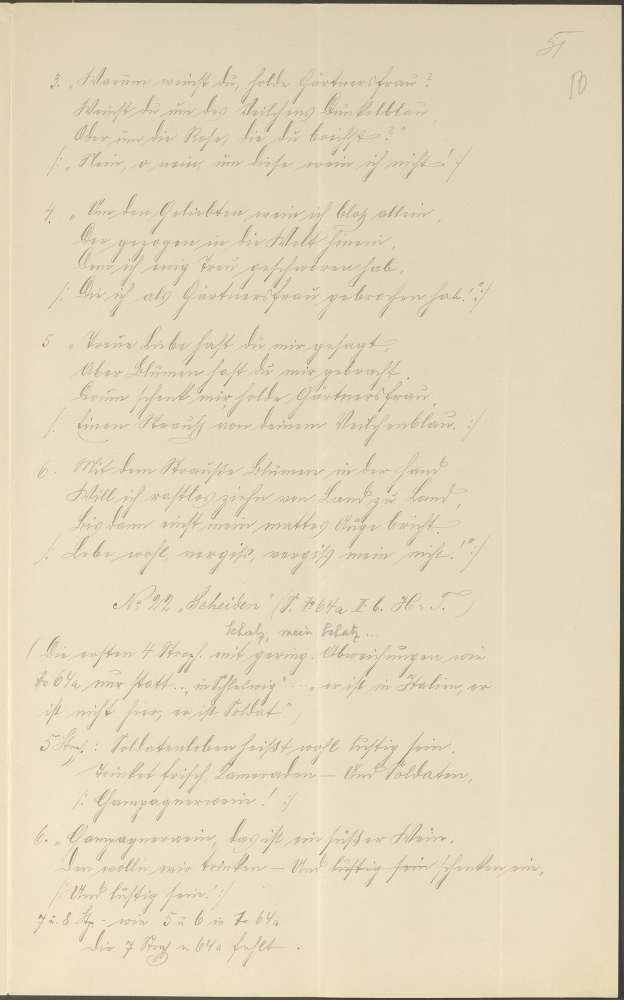 51
50
3. „Warum weinst du, holde Gärtnersfrau?
Weinst du um des Veilchens Dunkelblau
Oder um die Rose, die du brichst?"
/: „Nein, o nein, um diese wein ich nicht!" :/
4. „Um den Geliebten wein ich bloß allein,
Der gezogen in die Welt hinein,
Dem ich ewig Treu geschworen hab,
/: Die ich als Gärtnersfrau gebrochen hab!" :/
5 „Treue Liebe hast du mir gesagt,
Aber Blumen hast du mir gebracht.
Drum schenk mir, holde Gärtnersfrau,
/: Einen Strauß von deinem Veilchenblau. :/
6. Mit dem Strauße Blumen in der Hand
Will ich rastlos ziehn von Land zu Land,
Bis dann einst mein mattes Auge bricht.
/: Lebe wohl, vergiß, vergiß mein nicht!" :/
No 22 „Scheiden" (S. No 64a II b. H. T.)
Schatz, mein Schatz ...
(Die ersten 4 Stroph. mit gering. Abweichungen wie
No 64a nur statt ... „in Schleswig" ... „er ist in Italien, er
ist nicht hier, er ist Soldat")
5 Stroph.: Soldatenleben heißt wohl lustig sein.
Trinket frisch, Kameraden – Und Soldaten,
/: Champagnerwein! :/
6. „Campagnerwein, das ist ein süßer Wein.
Den wolln wir trinken – Und lustig sein schenken ein,
/: Und lustig sein! :/
7 u. 8 Str. – wie 5 u 6 in No 64a
Die 7 Stroph v 64a fehlt.